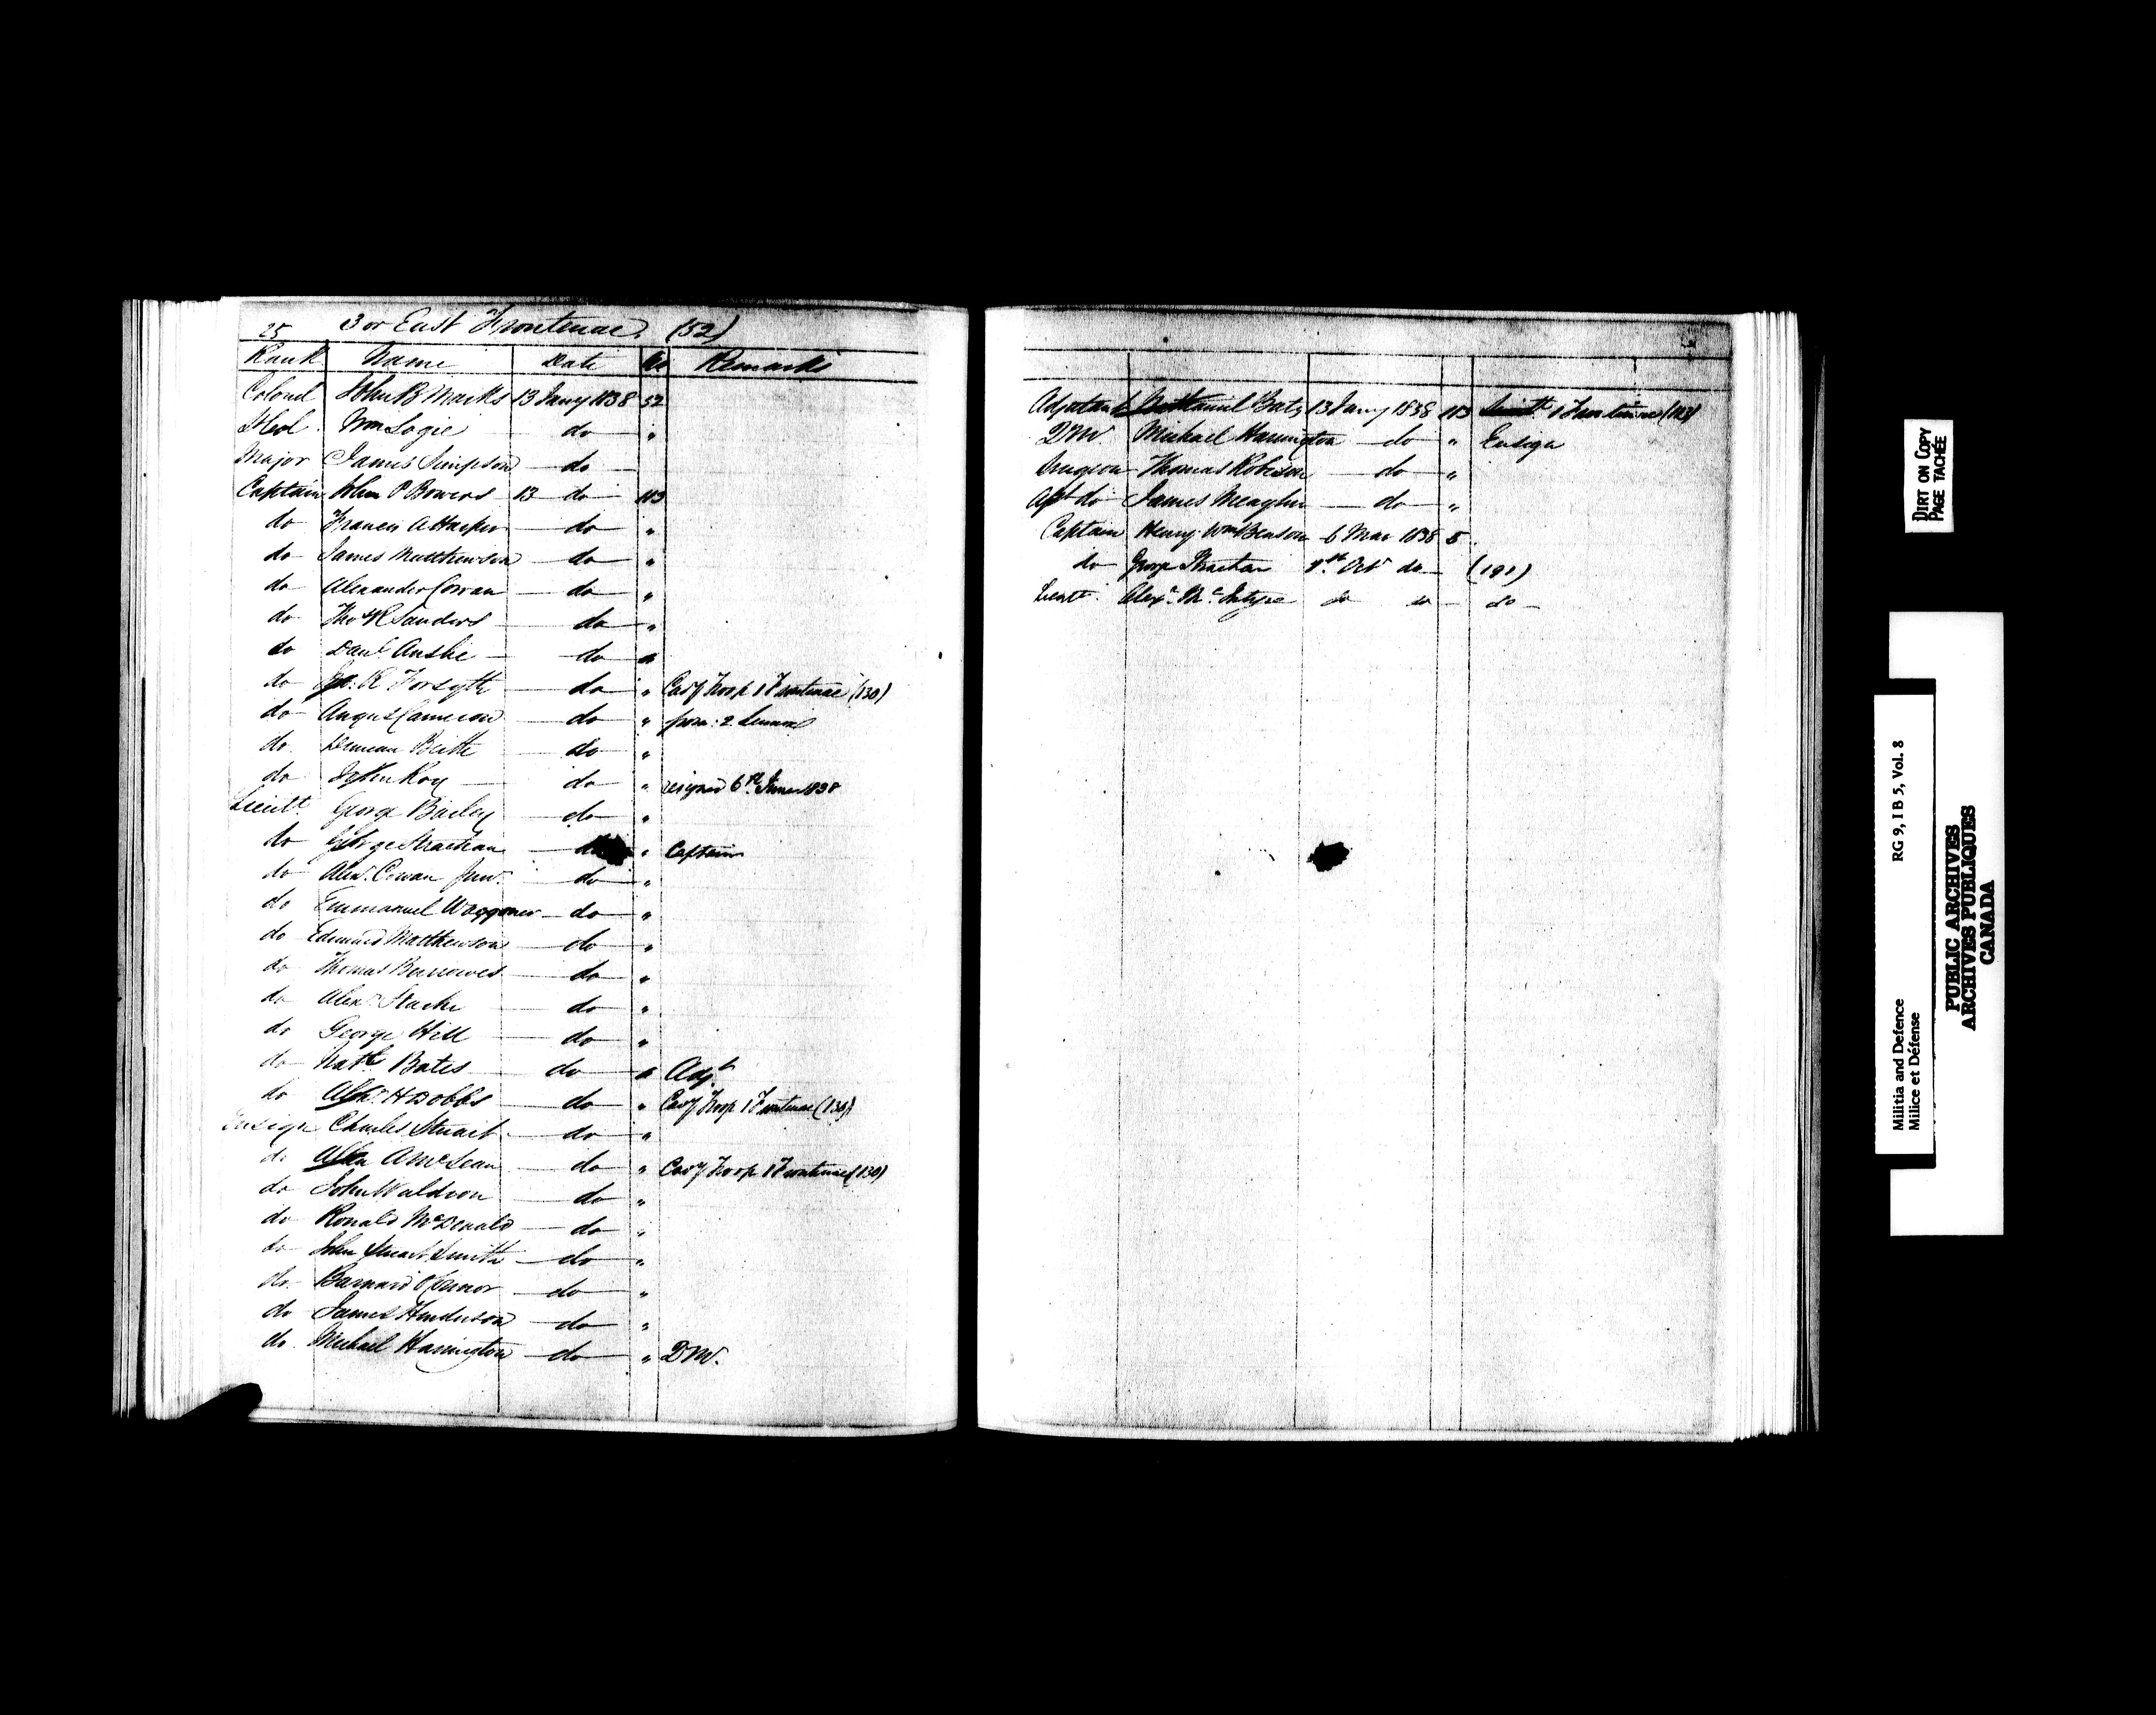 25 3 or East Frontenac (52)
Rank Name Date No Remarks
Colonel John B Marks 13 Jany 1838 52
Lt Col Wm Logie do "
Major James Simpson do
Captain John P Bowers 13 do 113
do Francis A Harper do "
do James Matthewson do "
do Alexander Cowan do "
do Thos R Sanders do "
do Danl Anslie do "
do R Forsyth do " Cavy Troop 1 Frontenac (130)
do Angus Cameron do " from 2 Lennox
do Duncan Beith do "
do John Roy do " resigned 6th June 1838
Lieutt George Baily do "
do George Strachan do " Captain
do Alexr Cowan Junr do "
do Emmanuel Waggoner do "
do Edmund Matthewson do "
do Thomas Burrowes do "
do Alexr do "
do George Hill do "
do Nathl Bates do " Adjt
do H Dobbs do " Cavy Troop 1 Frontenac (130)
Ensign Charles Stuart do "
do Allan A McLean do " Cavy Troop 1 Frontenac (130)
do John Waldron do "
do Ronald McDonald do "
do John Stuart Smith do "
do Barnard OConnor do "
do James Henderson do "
do Michael Harrington do " QM.
Adjutant Nathaniel Bates 13 Jany 1838 113 1 Frontenac (113)
QM Michael Harrington do " Ensign
Surgeon Thomas Robison do "
Asst do James Meagher do "
Captain Henry Wm Benson 6 Mar 1838 5
do George Strachan Octr do (191)
Lieutt. Alexr McIntyre do do do
DIRT ON COPY
PAGE TACHÉE
Militia and Defence RG 9, I B 5, Vol. 8
Milice et Défense
PUBLIC ARCHIVES
ARCHIVES PUBLIQUES
CANADA